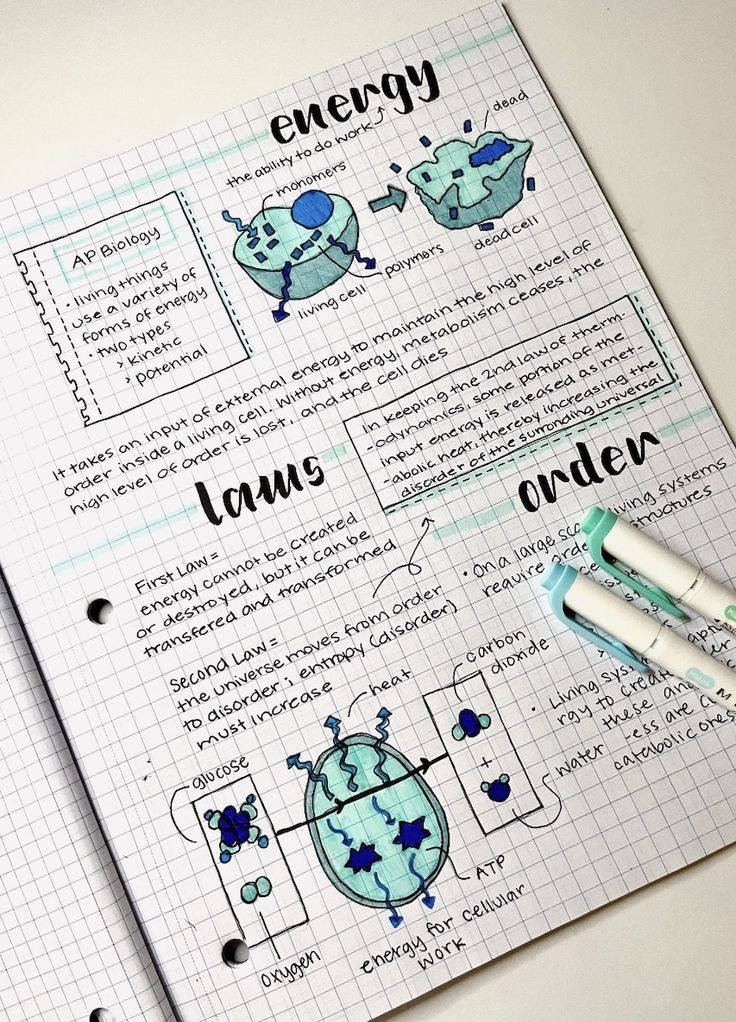 energy
the ability to do work
AP Biology
• living things
use a variety of
forms of energy
• two types
> kinetic
> potential
monomers
dead
polymers
living cell
dead cell
It takes an input of external energy to maintain the high level of
order inside a living cell. Without energy, metabolism ceases, the
high level of order is lost, and the cell dies
In keeping the 2nd law of therm-
-odynamics, some portion of the
input energy is released as met-
-abolic heat, thereby increasing the
disorder of the surronding universal
laws
First Law =
energy cannot be created
or destroyed, but it can be
transfered and transformed
Second Law =
the universe moves from order
to disorder ; entropy (disorder)
must increase
order
• On a large living systems
require structures
• Living
-rgy to
these
-ess are
catabolic
heat
carbon
dioxide
glucose
+
water
ATP
oxygen
energy for cellular
work